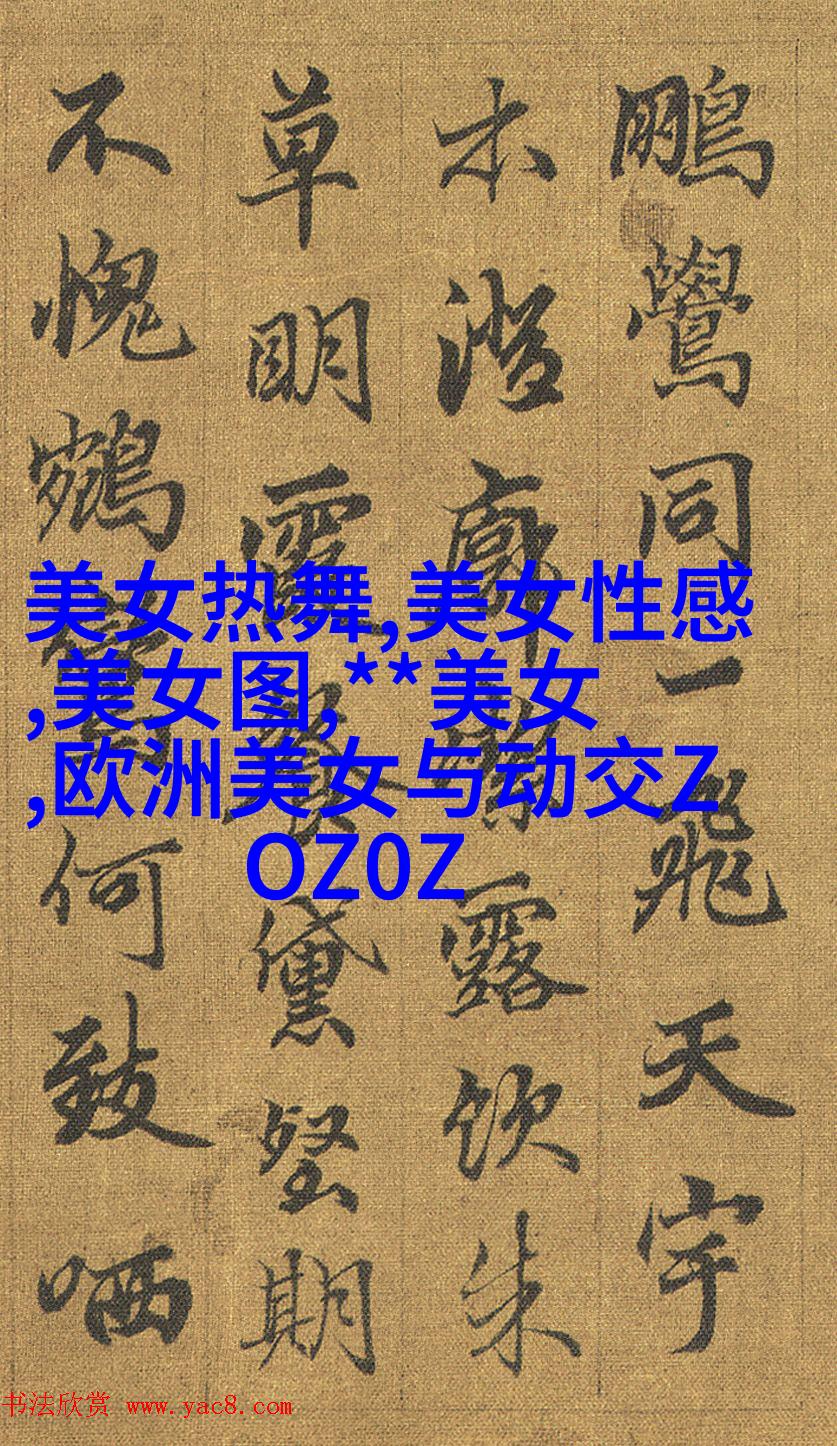 鵬鷽同一飛天宇
木澄廓露飲朱
草明霞黛堅期
不愧鶴何致哂
美女热舞,美女性感
,美女图,**美女
,欧洲美女与动交Z
OZ0Z
书法欣赏 www.yac8.com